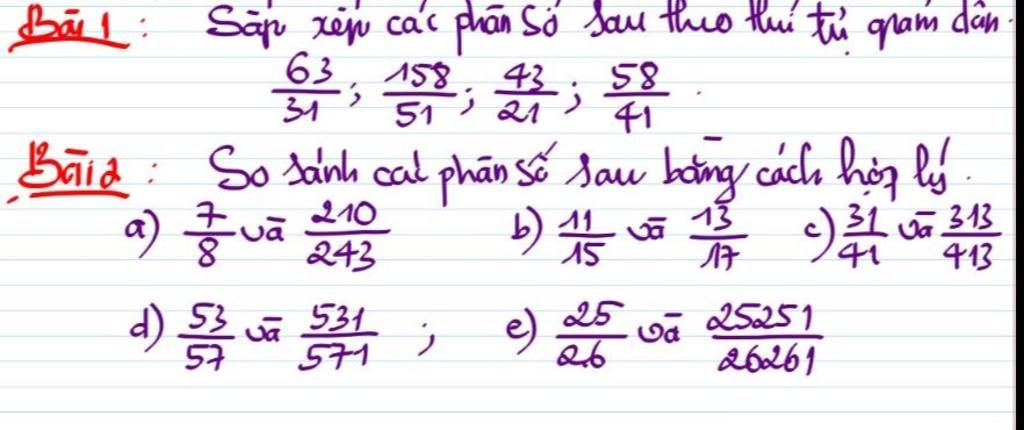 Bài 1 : Sắp xếp các phân số sau theo thứ tự giảm dần.
63/31 ; 158/51 ; 43/21 ; 58/41 .
Bài 2 : So sánh các phân số sau bằng cách hợp lý.
a) 7/8 và 210/243 b) 11/15 và 13/17 c) 31/41 và 313/413
d) 53/57 và 531/571 ; e) 25/26 và 25251/26261